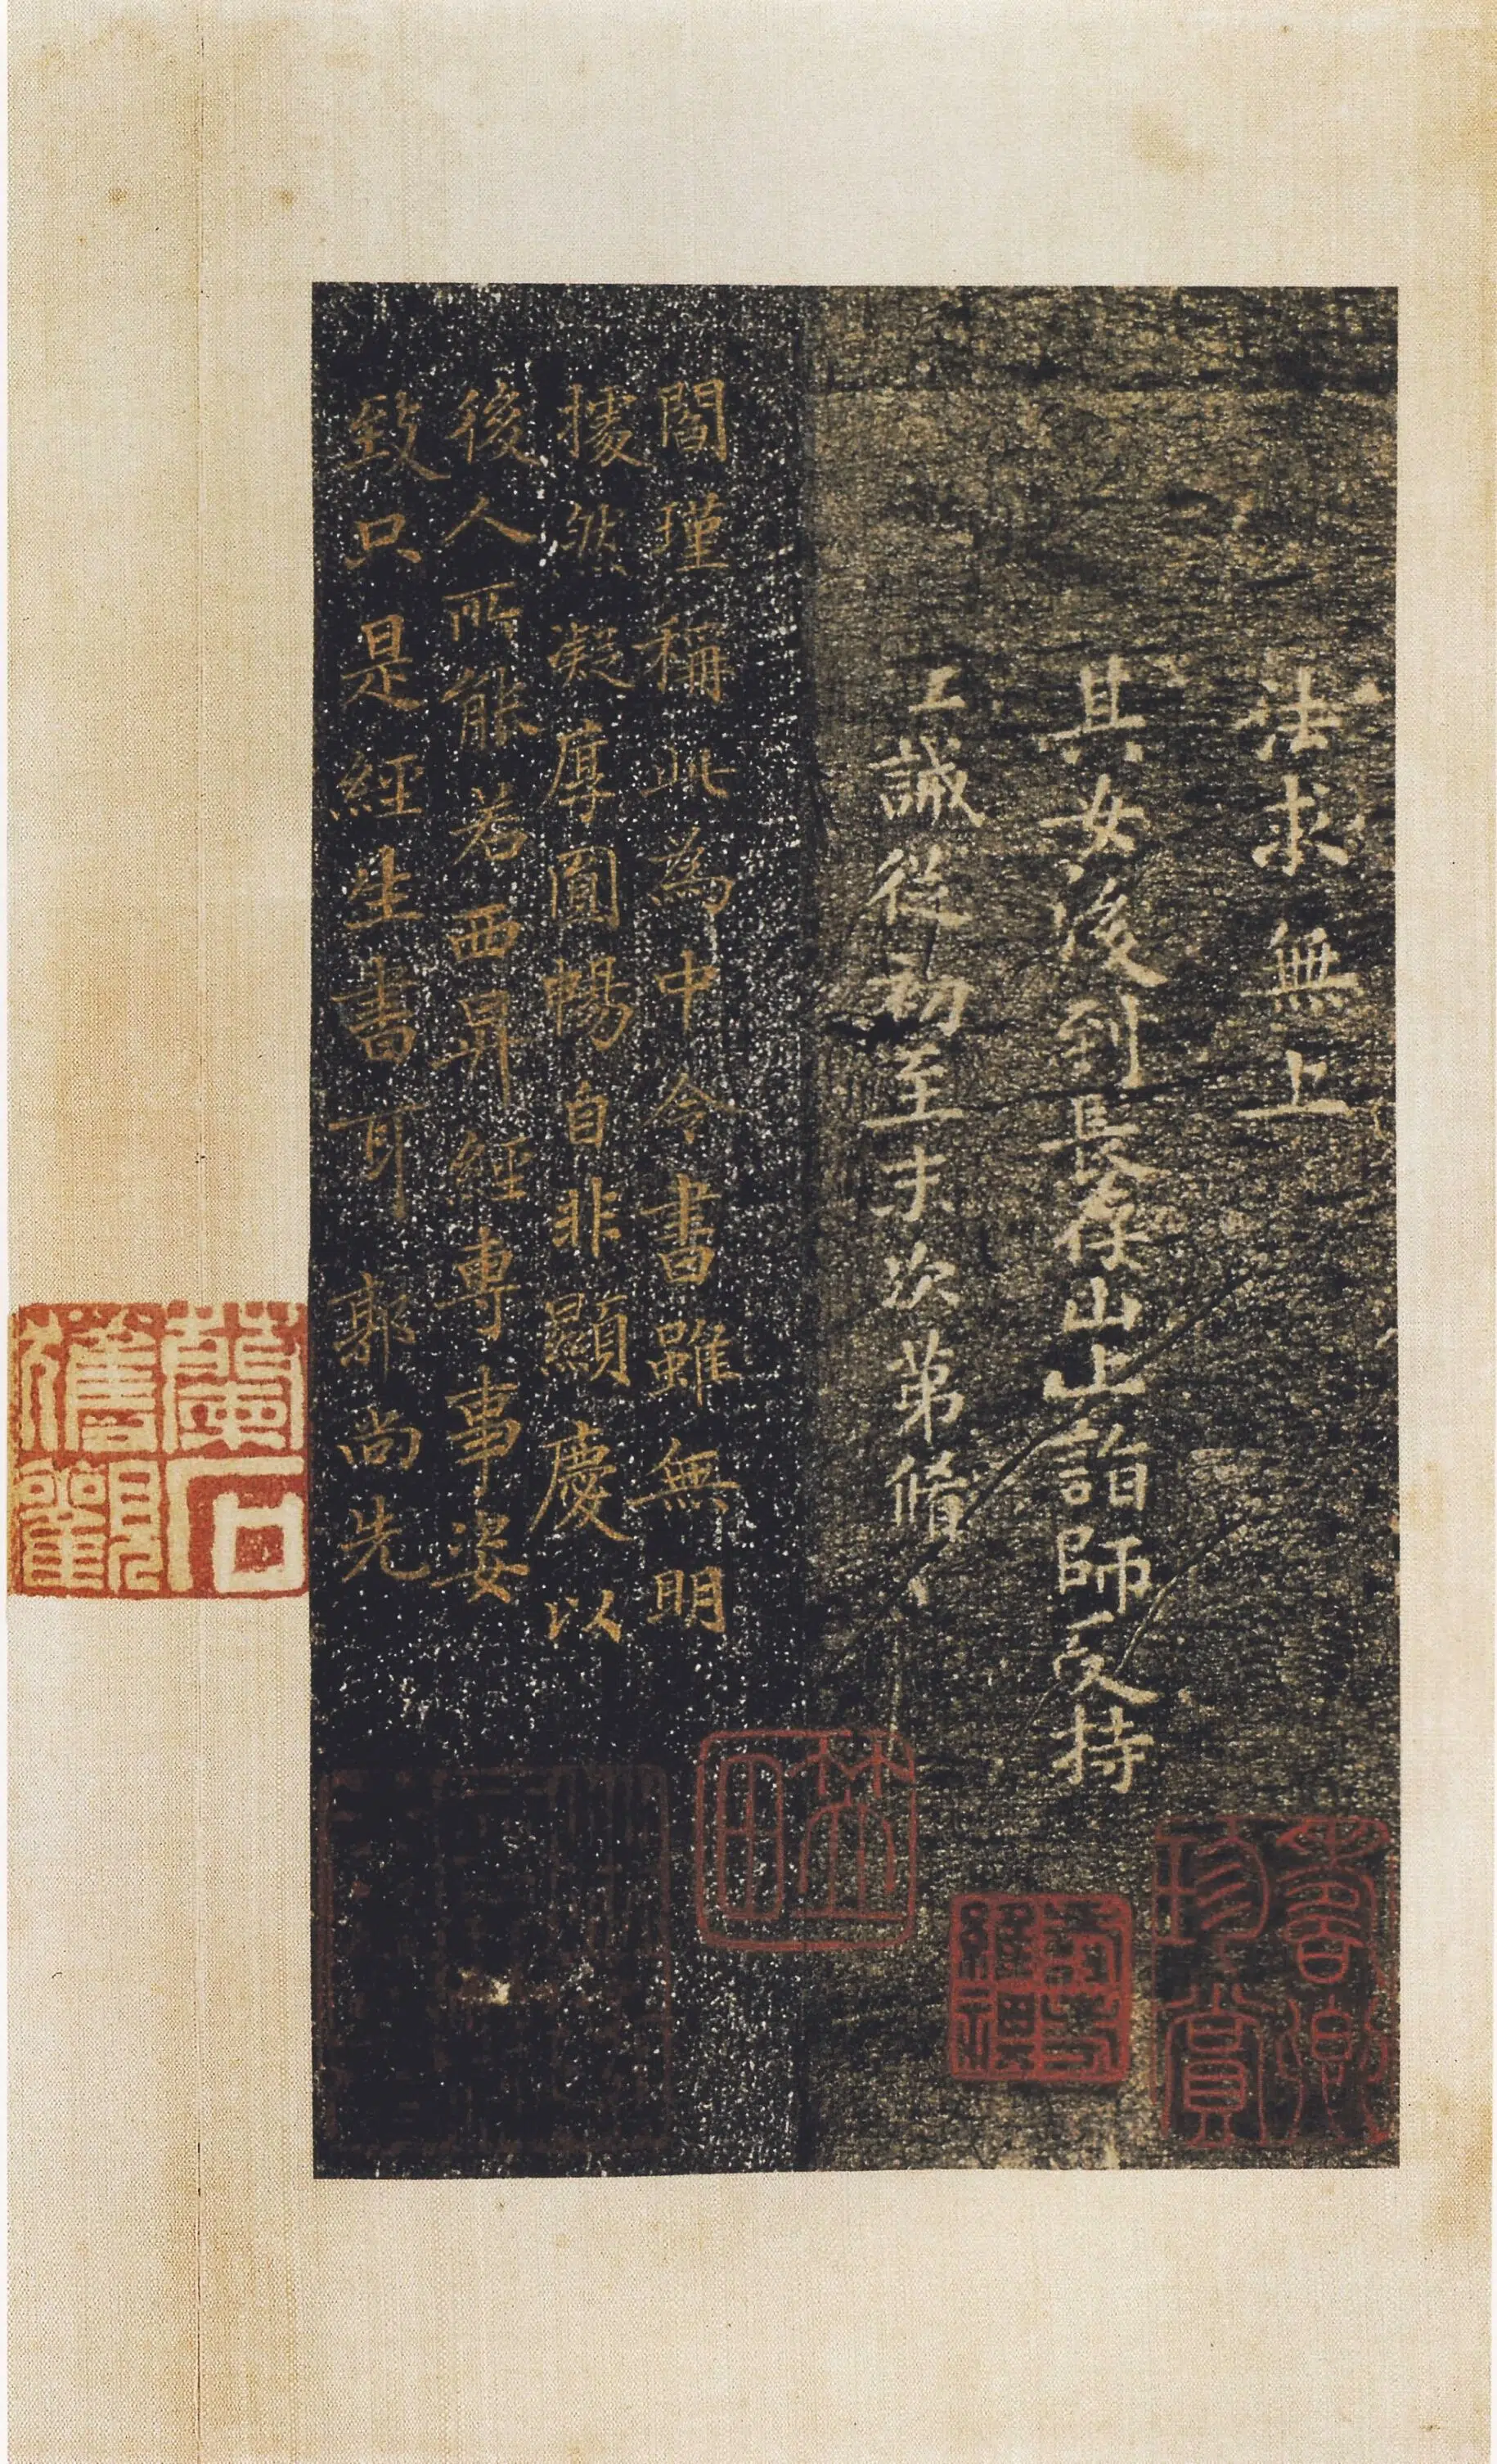 法求無上
其女後到長存山上詣師受持
工誠從初至末次第脩
閻瑾稱此為中令書雖無明
據然凝厚圓暢自非顯慶以
後人所能若西昇經專事姿
致只是經生書耳 郭尚先
林
田
珍賞